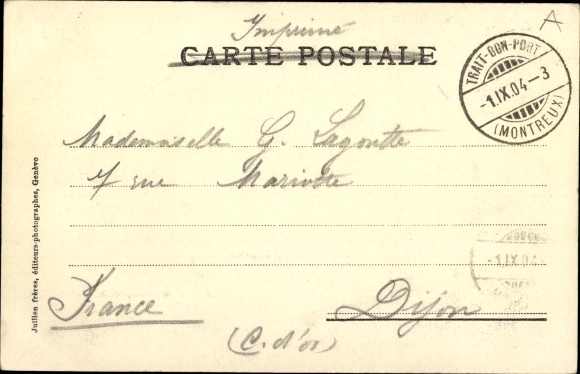 Imprimé
CARTE POSTALE
A
TRAIT-BON-PORT
-1.IX.04-3
(MONTREUX)
Mademoiselle G. Lagoutte
7 rue Mariotte
-1.IX.04-
France
Dijon
(C. d'or)
Jullien frères, éditeurs-photographes, Genève